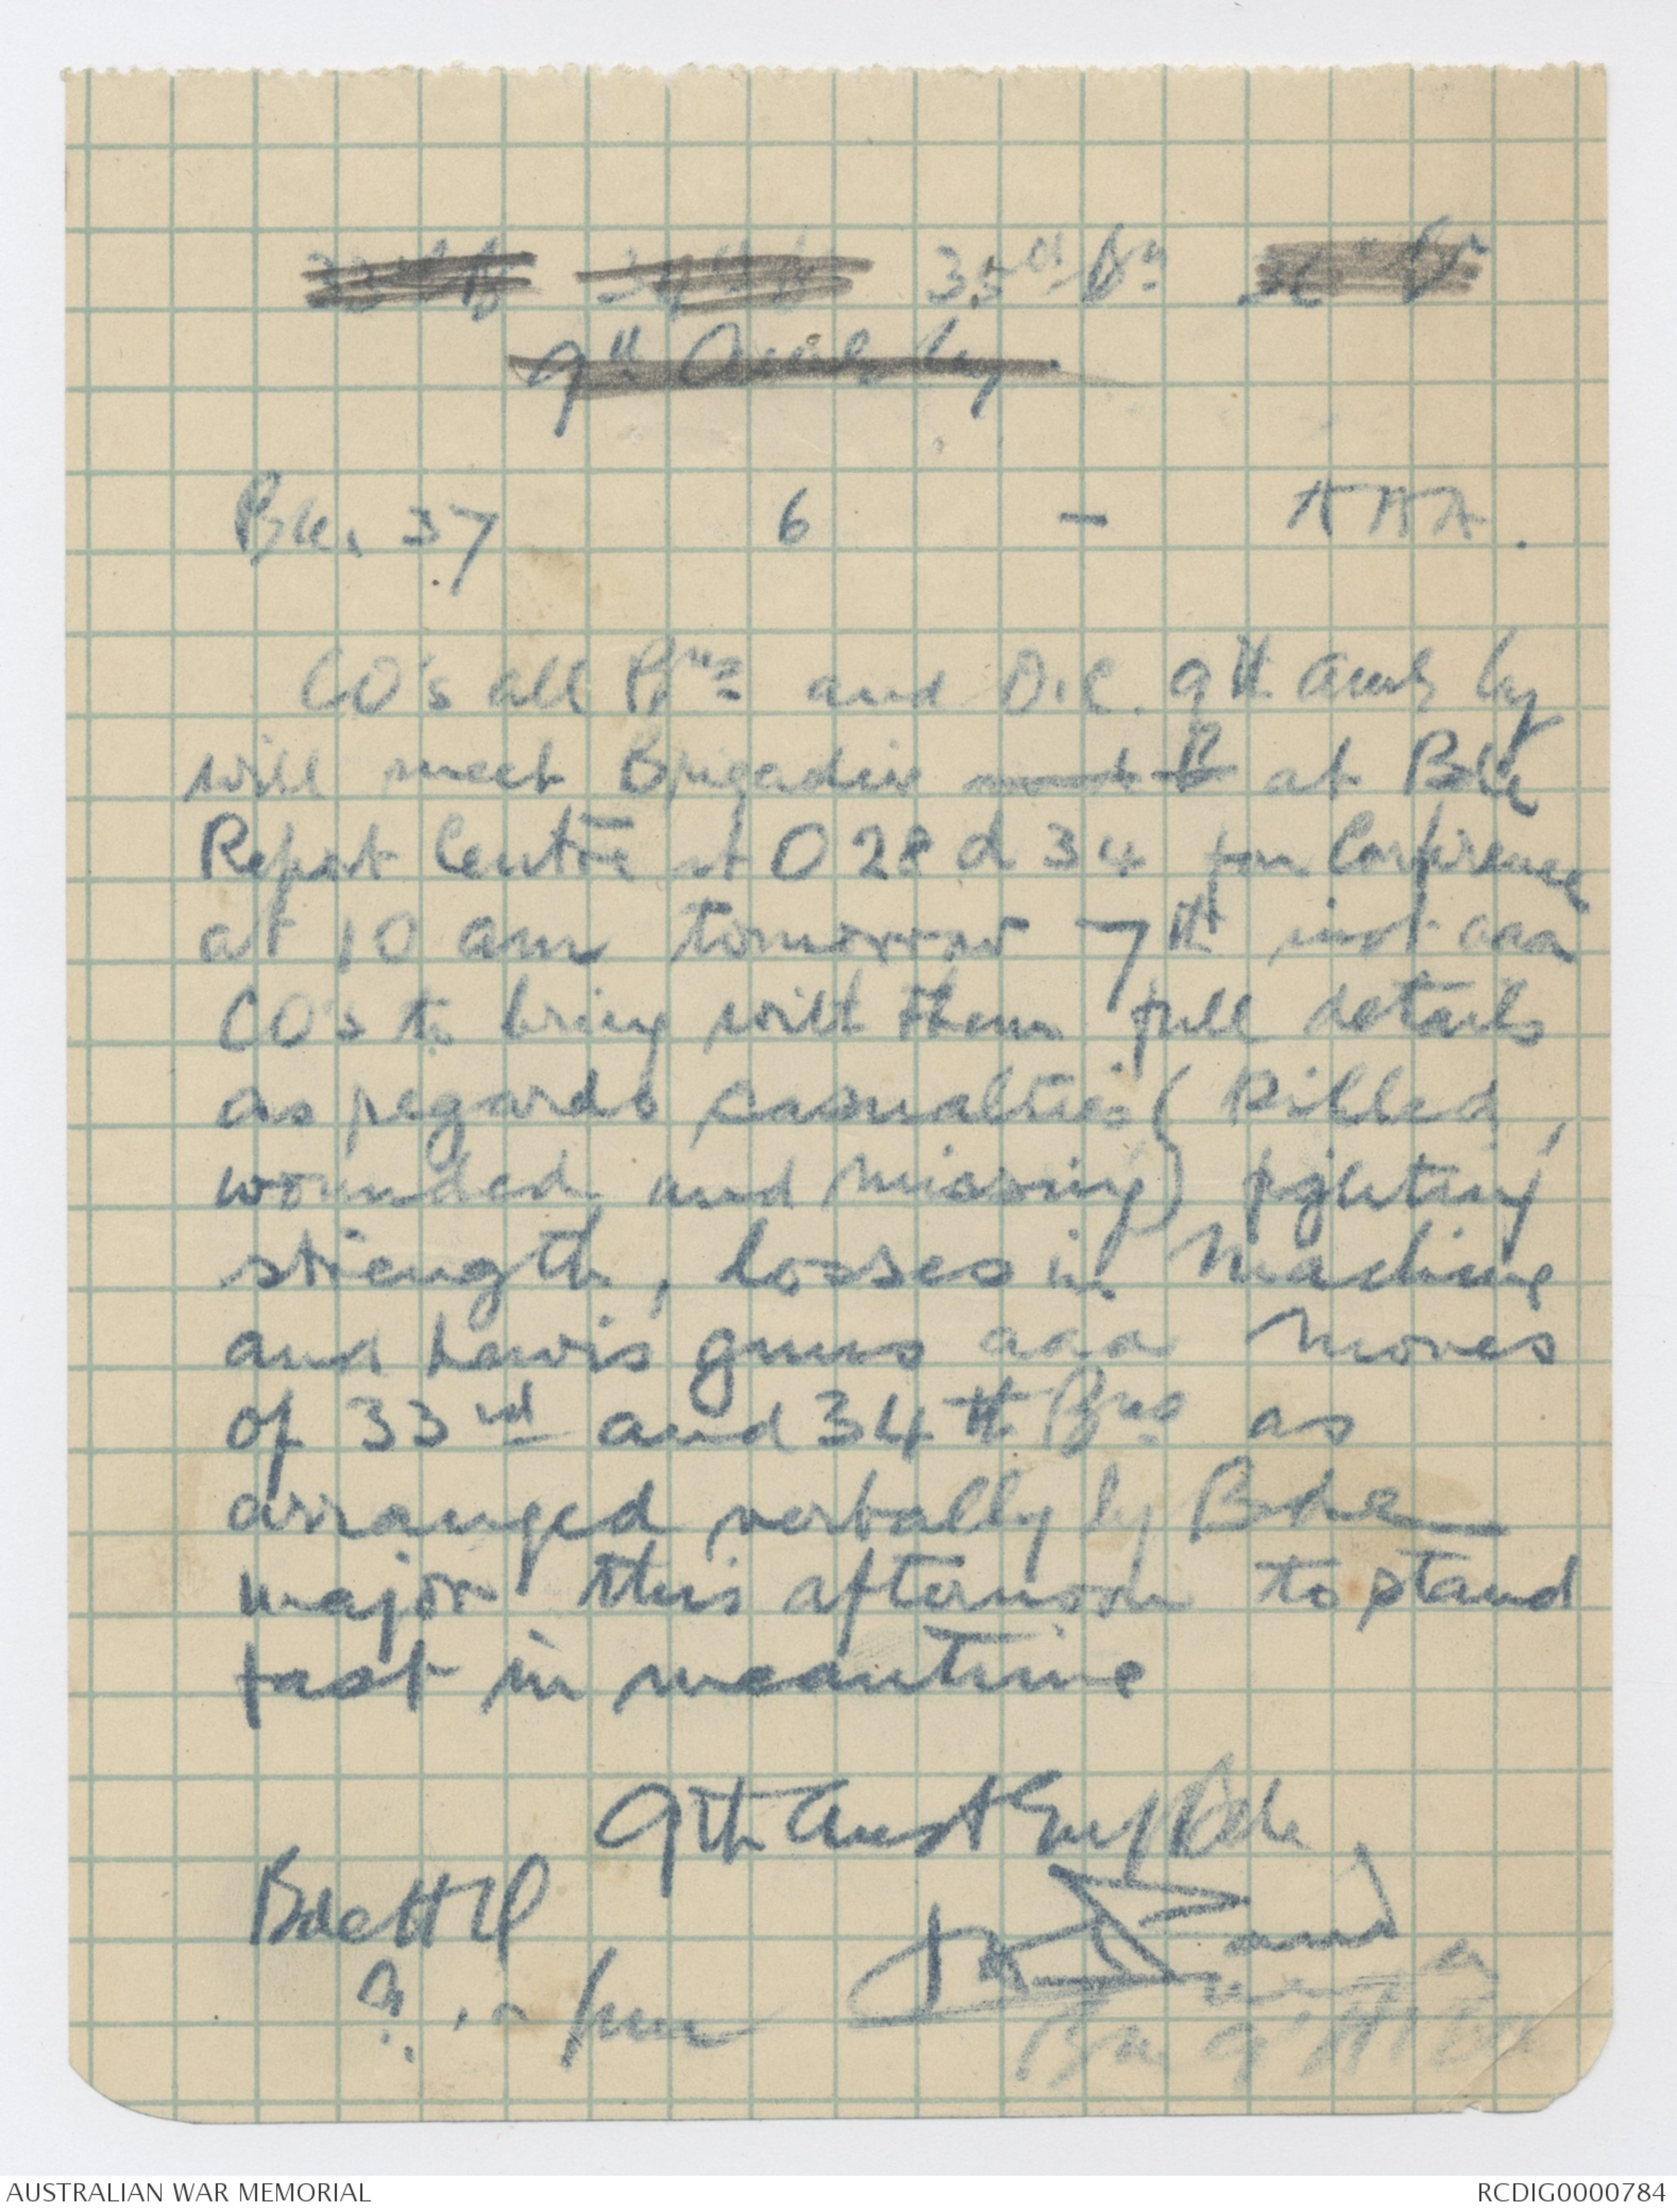 33rd Bn 34th Bn 35th Bn
9th Amb Coy.
Bde. 37 6 - AAA.
CO's all Bns and O.C. 9th Amb Coy
will meet Brigadier at Bde
Report Centre at O 28 d 34 for Conference
at 10 am tomorrow 7th inst aaa
CO's to bring with them full details
as regards casualties (killed,
wounded and missing) fighting
strength, losses in Machine
and Lewis guns aaa Moves
of 33rd and 34th Bns as
arranged verbally by Bde
major this afternoon to stand
fast in meantime
9th Aust Inf Bde
Bde HQ
pm
AUSTRALIAN WAR MEMORIAL
RCDIG0000784